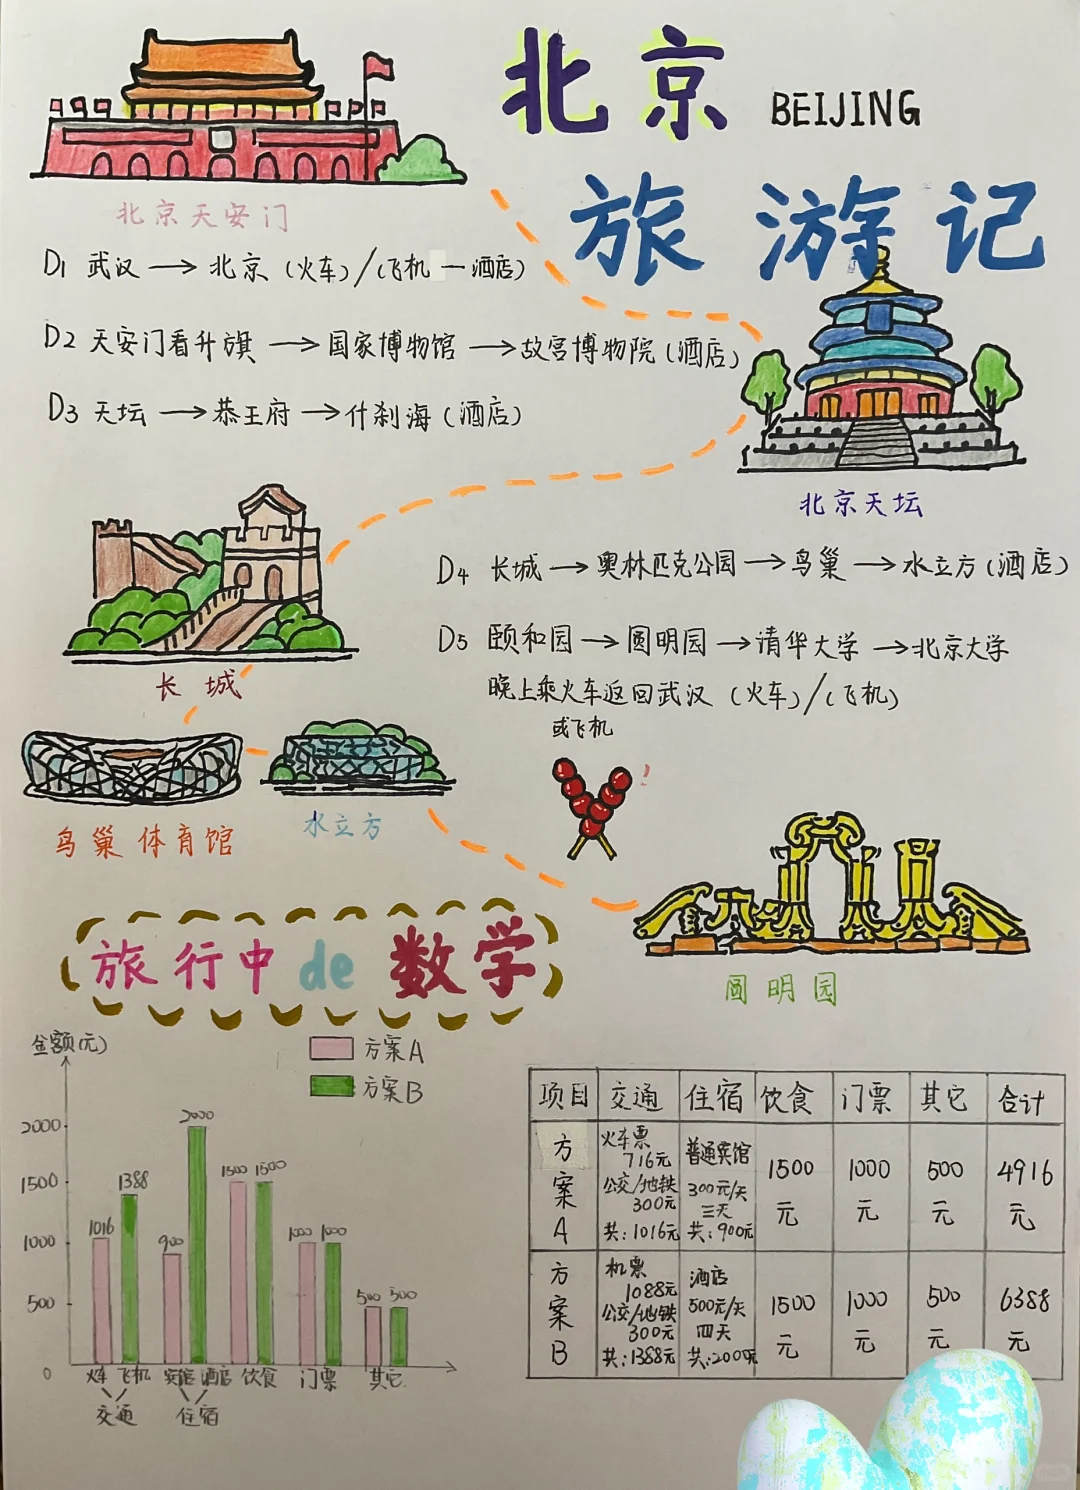 北京 BEIJING
旅游记
北京天安门
D1 武汉→北京(火车)/(飞机—酒店)
D2 天安门看升旗→国家博物馆→故宫博物院(酒店)
D3 天坛→恭王府→什刹海(酒店)
北京天坛
D4 长城→奥林匹克公园→鸟巢→水立方(酒店)
D5 颐和园→圆明园→清华大学→北京大学
晚上乘火车返回武汉(火车)/(飞机)
或飞机
长城
鸟巢体育馆
水立方
圆明园
旅行中de数学
金额(元)
方案A
方案B
2000
1500
1000
500
0
1016
1388
900
2000
1500
1500
1000
1000
500
500
火车 飞机 宾馆 酒店 饮食 门票 其它
交通 住宿
项目 交通 住宿 饮食 门票 其它 合计
方案A
火车票
716元
公交/地铁
300元
共:1016元
普通宾馆
300元/天
三天
共:900元
1500元
1000元
500元
4916元
方案B
机票
1088元
公交/地铁
300元
共:1388元
酒店
500元/天
四天
共:2000元
1500元
1000元
500元
6388元